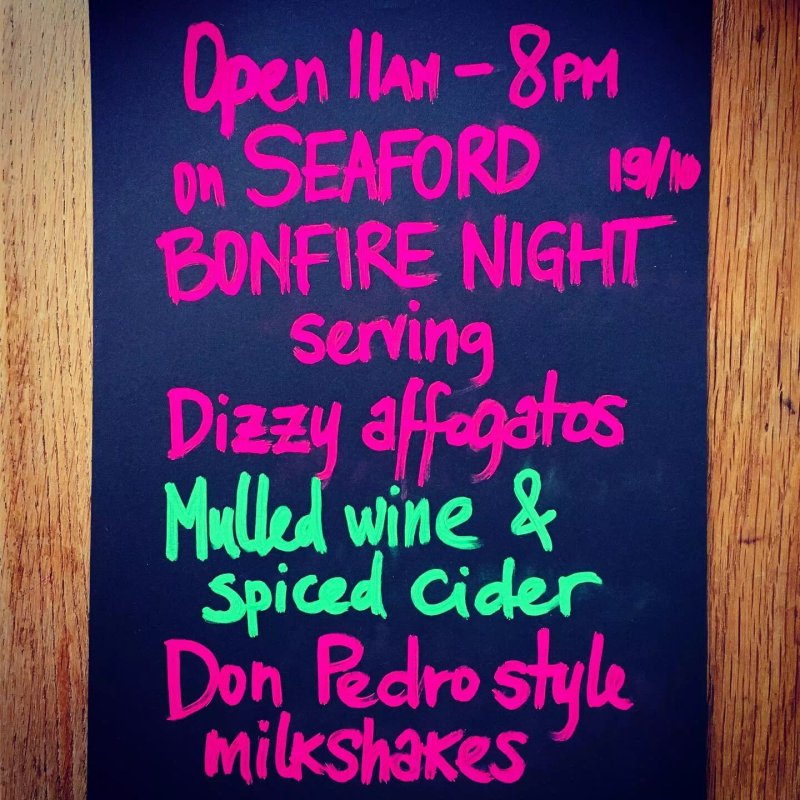 Open 11AM – 8PM
on SEAFORD 19/10
BONFIRE NIGHT
serving
Dizzy affogatos
Mulled wine &
spiced cider
Don Pedro style
milkshakes